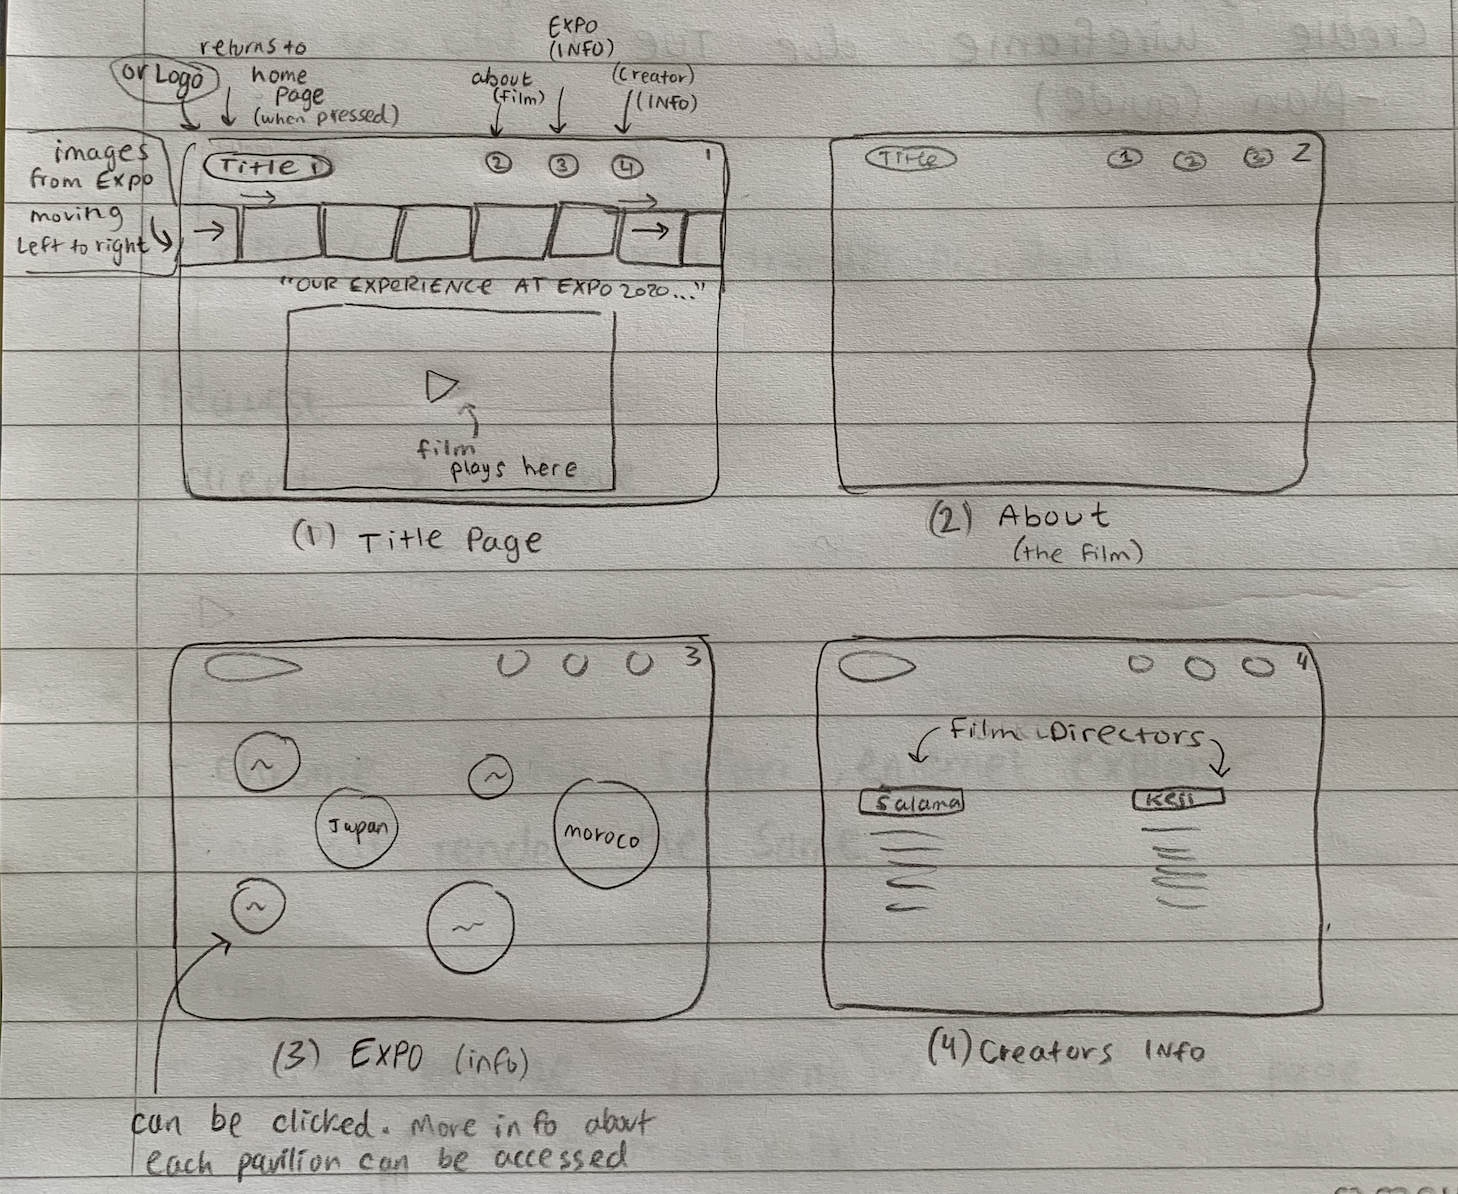 returns to
or Logo
home
page
(when pressed)
about
(film)
EXPO
(INFO)
(Creator)
(INFO)
images
from Expo
moving
left to right
Title 1
2
3
4
1
"OUR EXPERIENCE AT EXPO 2020..."
film
plays here
(1) Title Page
Title
1
2
3
2
(2) About
(the film)
3
Japan
moroco
(3) EXPO (info)
can be clicked. More info about
each pavilion can be accessed
4
Film Directors
Salama
(4) Creators INFO